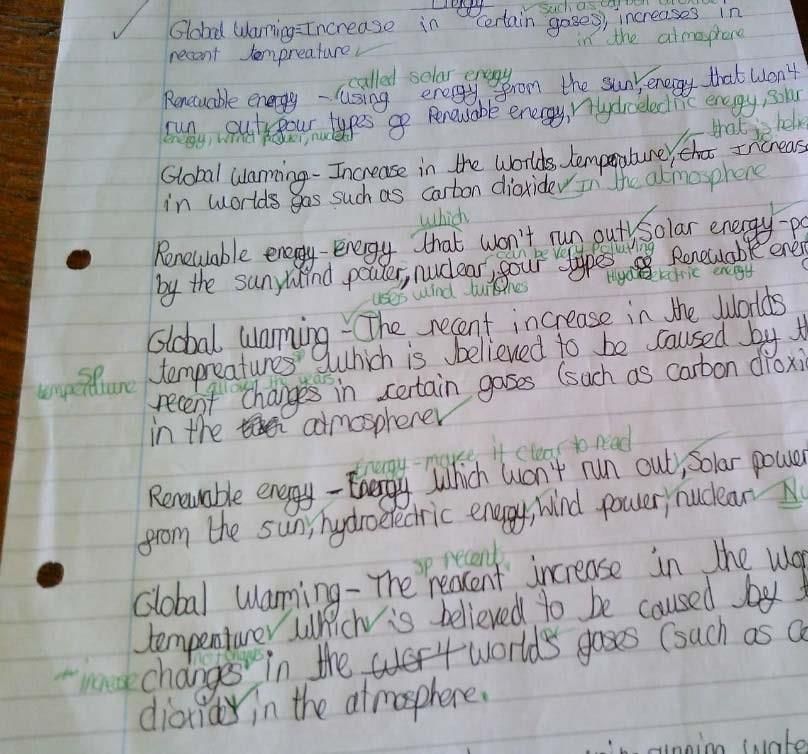 such as carbon
Energy
Global Warming=Increase in certain gases, increases in
recent tempreature in the atmosphere
called solar energy
Renewable energy - (using energy from the sun, energy that won't
run out, four types of Renewable energy, Hydroelectric energy, Solar
energy, wind power, nuclear
that is belie
Global warming - Increase in the worlds temperature, that Increas
in worlds gas such as carbon dioxide in the atmosphere
which
Renewable energy - Energy that won't run out, Solar energy - po
can be very polluting
by the sun, Wind power, nuclear, four types of Renewable ener
uses wind turbines Hydroelectric energy
Global warming - The recent increase in the Worlds
sp
tempreatures which is believed to be caused by th
temperature
recent changes in certain gases (such as carbon dioxi
in the atmosphere
Energy - make it clear to read
Renewable energy - Energy which won't run out, Solar power
from the sun, hydroelectric energy, Wind power, nuclear Nu
sp recent
Global Warming - The rearent increase in the wor
temperature which is believed to be caused by t
not changes
+ increase changes in the wor4 worlds gases (such as ca
dioxide in the atmosphere.